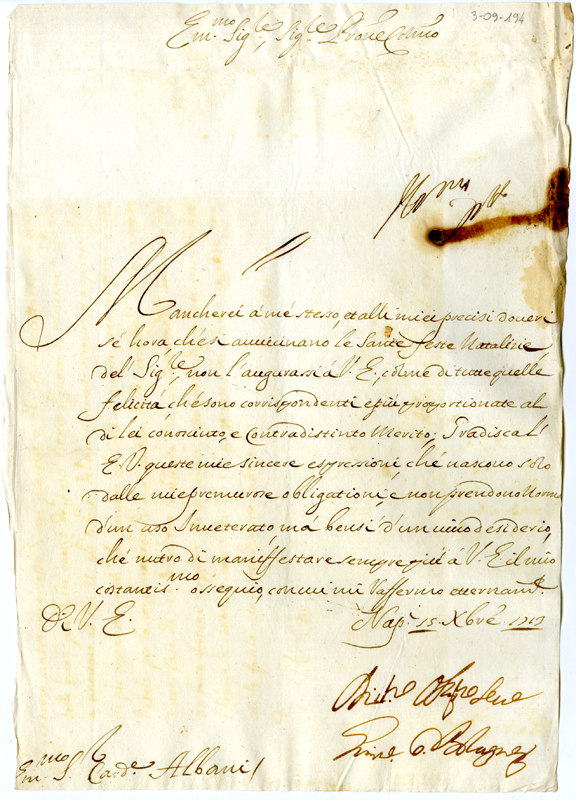 3-09-194
Em.mo Sig.re, Sig.re Prone Colmo
Mancherei á mé stesso, et alli miei precisi doveri
sé hora ché si auuicinano le Sante feste Natalizie
del Sig.re, non l'augurassi á V. E. colme di tutte quelle
felicitá ché sono corrispondenti e piú proportionate al
di lei conosciuto, e Contradistinto Merito; Gradisca l'
E. V. queste mie sincere espressioni, ché nascono solo
dalle mie premurose obligationi, e non prendono Norma
d'un uso Inueterato, má bensi d'un viuo desiderio,
ché nutro di maniffestare sempre piú á V. E. il mio
costantis.mo ossequio, con cui mi Raffermo etternam.te
Di V. E.
Nap. 15 Xbré 1717
Em.mo S.r Card.e Albani